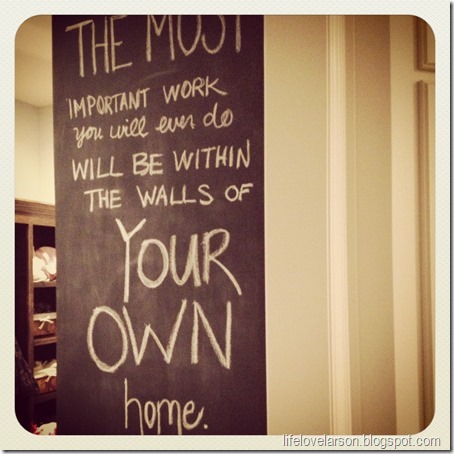 THE MOST
IMPORTANT WORK
you will ever do
WILL BE WITHIN
THE WALLS OF
YOUR
OWN
home.
lifelovelarson.blogspot.com